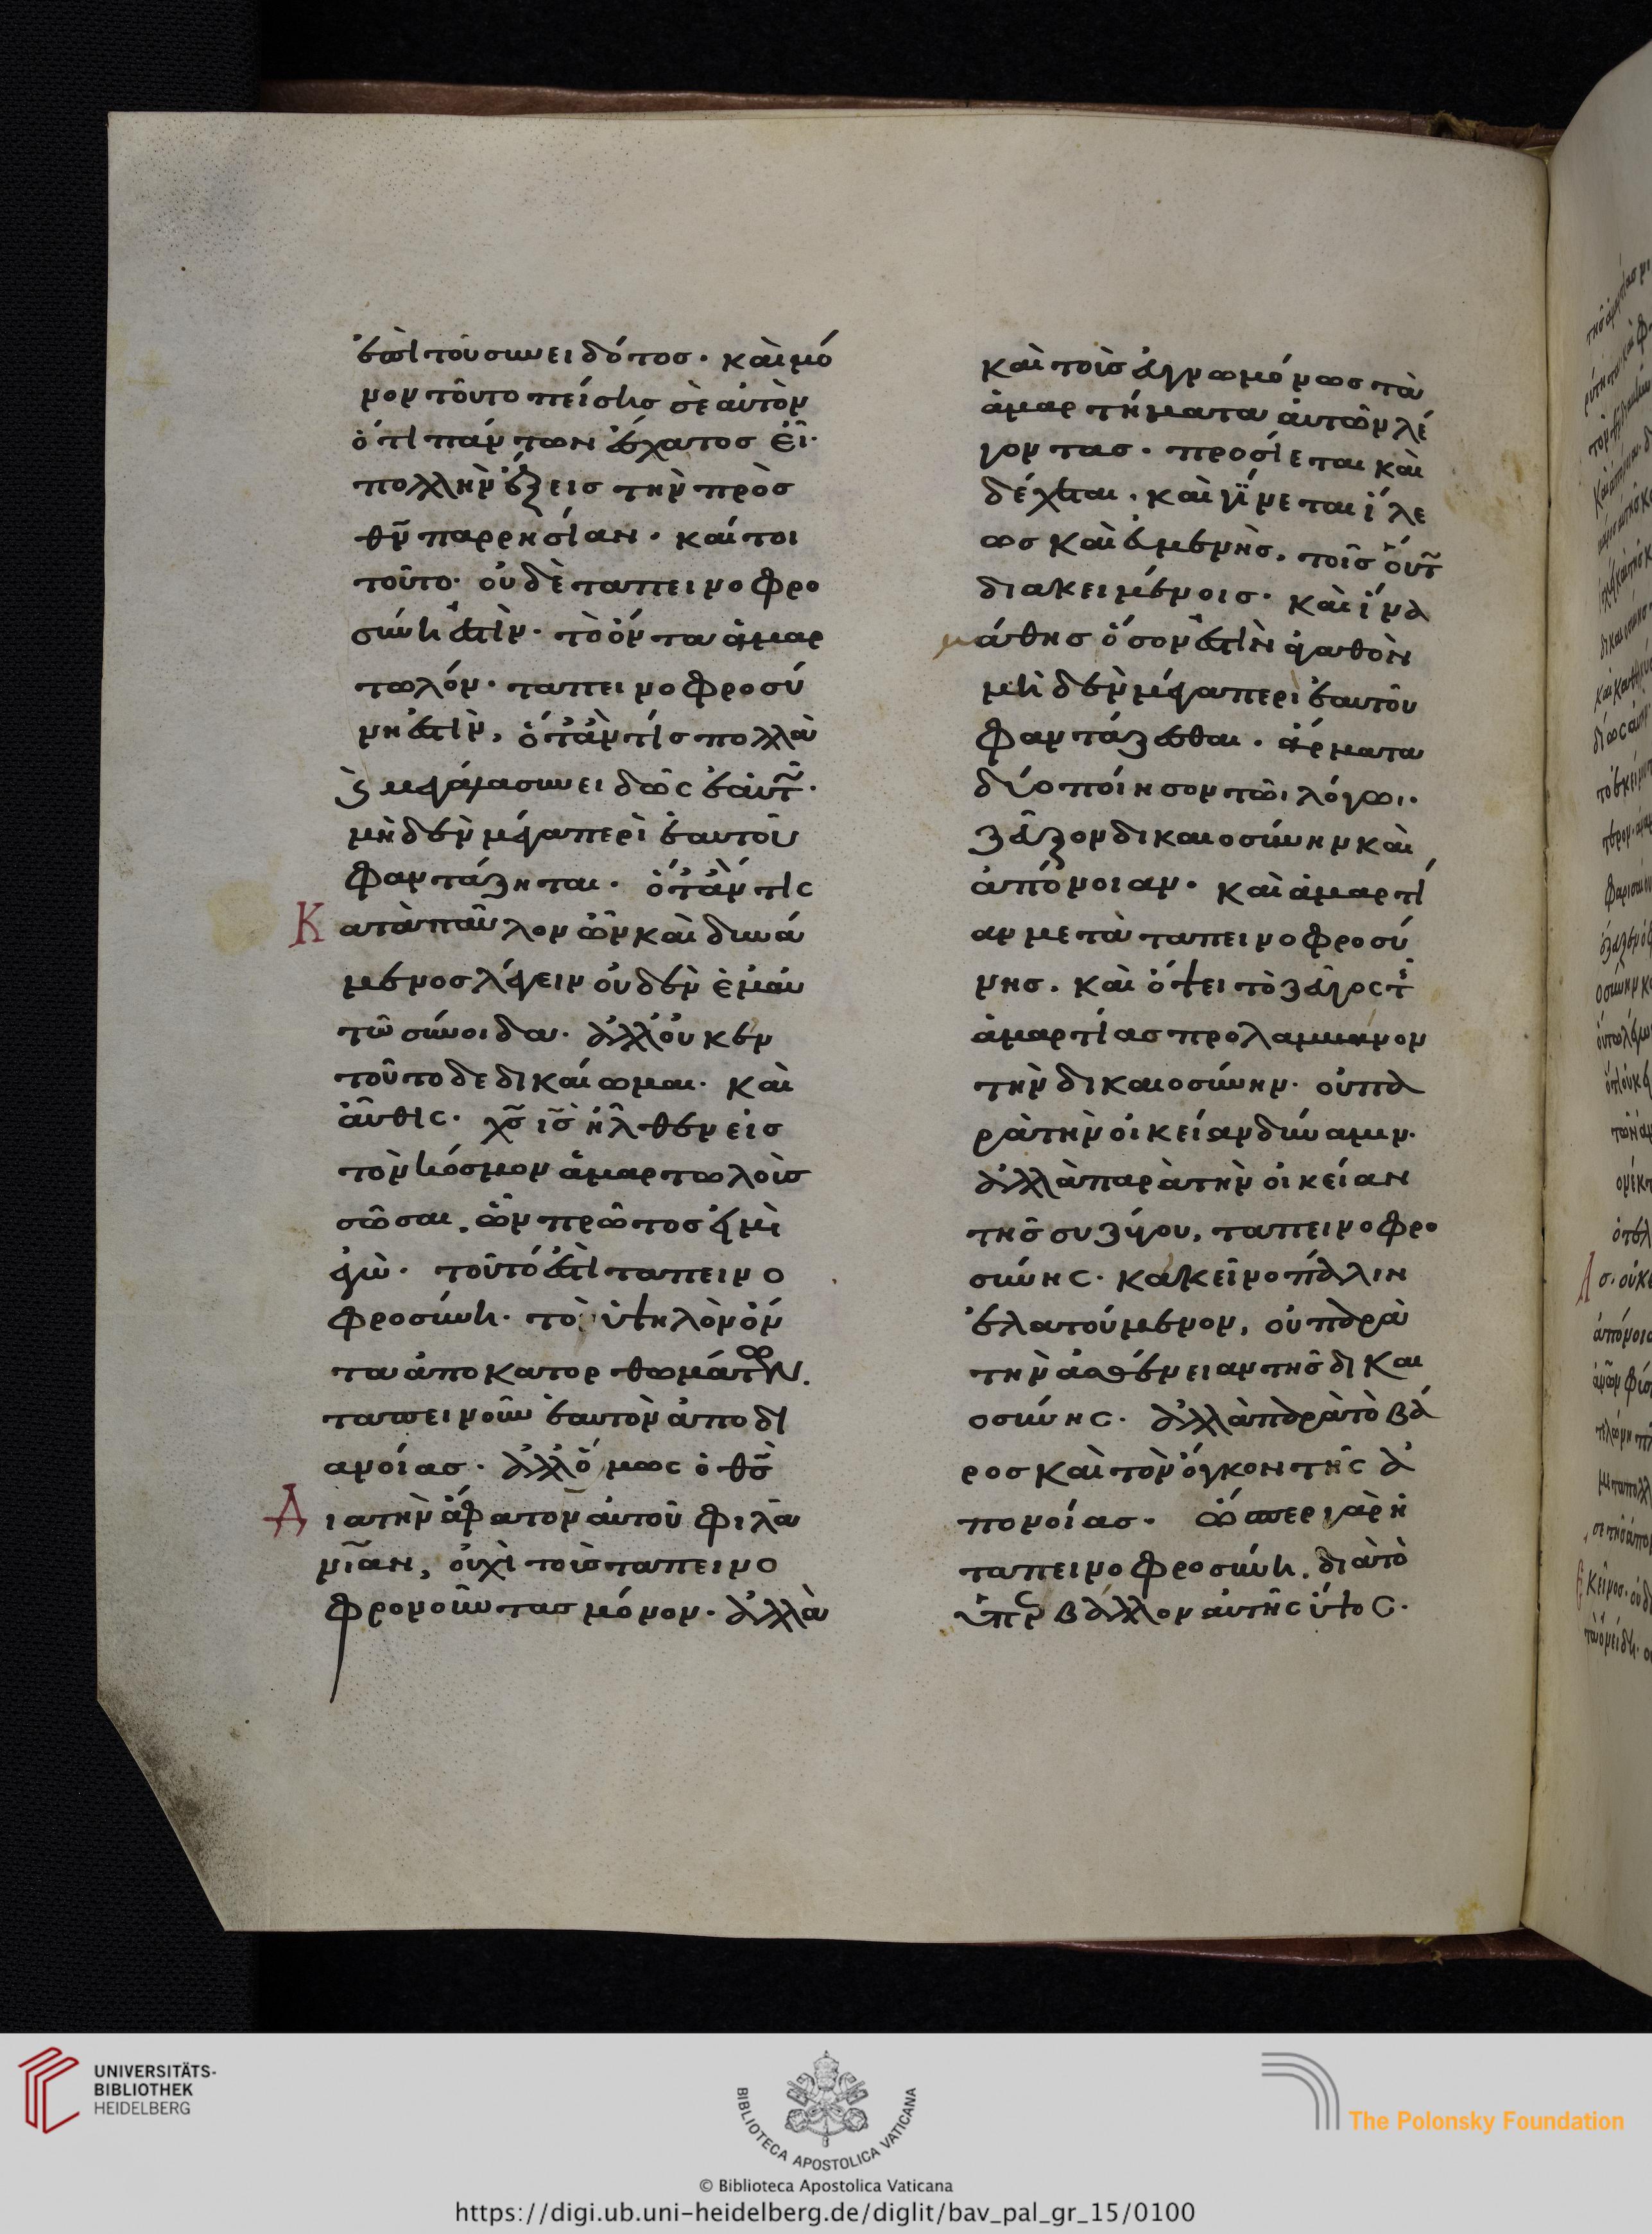 ἐπὶ τοῦ συνειδότος· καὶ μό
νον τοῦτο πείσης σὲ αὐτὸν
ὅτι πάντων ἔσχατος εἶ·
πολλὴν ἕξεις τὴν πρὸς
θν̄ παρρησίαν· καίτοι
τοῦτο· οὐδὲ ταπεινοφρο
σύνη ἐστὶν· τὸ ὄντα ἁμαρ
τωλόν· ταπεινοφροσύ
νη ἐστὶν, ὅταν τίς πολλὰ
καὶ μεγάλα συνειδὼς ἑαυτῷ·
μὴδὲν μέγα περὶ ἑαυτοῦ
φαντάζηται· ὅταν τίς
Κατὰ παῦλον ὢν καὶ δυνά
μενος λέγειν οὐδὲν ἐμαυ
τῷ σύνοιδα· ἀλλ' οὐκ ἐν
τοῦτο δεδικαίωμαι· καὶ
αὖθις· χς̄ ις̄ ἦλθεν εἰς
τὸν κόσμον ἁμαρτωλοὺς
σῶσαι, ὧν πρῶτος εἰμὶ
ἐγὼ· τοῦτό ἐστι ταπεινο
φροσύνη· τὸ ὑψηλὸν ὄν
τα ἀπο κατορθωμάτων.
ταπεινοῦν ἑαυτὸν ἀπο δι
ανοίας· ἀλλ' ὅμως ὁ θς̄
Διατὴν ἄφατον αὐτοῦ φιλαν
νιαν, οὐχὶ τοὺς ταπεινο
φρονοῦντας μόνον· ἀλλὰ
καὶ τοὺς εὐγνωμόνως τὰ
ἁμαρτήματα αὐτῶν λέ
γοντας· προσίεται καὶ
δέχεται· καὶ γίνεται ἵλε
ως καὶ εὐμενὴς, τοῖς οὕτω
διακειμένοις· καὶ ἵνα
μάθης ὅσον ἐστὶν ἀγαθὸν
μὴ δὲν μέγα περὶ ἑαυτοῦ
φαντάζεσθαι· ἅρματα
δύο ποίησον τῶι λόγωι·
ζεῦξον δικαιοσύνην καὶ
ἀπόνοιαν· καὶ ἁμαρτί
αν μετὰ ταπεινοφροσύ
νης· καὶ ὄψει τὸ ζεῦγος τῆς
ἁμαρτίας προλαμβάνον
τὴν δικαιοσύνην· οὐ πα
ρὰ τὴν οἰκείαν δύναμιν·
ἀλλὰ παρὰ τὴν οἰκείαν
τῆς συζύγου, ταπεινοφρο
σύνης· κἀκεῖνο πάλιν
ἐλαττούμενον, οὐ παρὰ
τὴν ἀσθένειαν τῆς δικαι
οσύνης· ἀλλὰ παρὰ τὸ βά
ρος καὶ τὸν ὄγκον τῆς ἀ
πονοίας· ὥσπερ γὰρ ἡ
ταπεινοφροσύνη, διὰ τὸ
ὑπερβάλλον αὐτῆς ὕψος·
UNIVERSITÄTS-
BIBLIOTHEK
HEIDELBERG
BIBLIOTECA APOSTOLICA VATICANA
The Polonsky Foundation
© Biblioteca Apostolica Vaticana
https://digi.ub.uni-heidelberg.de/diglit/bav_pal_gr_15/0100